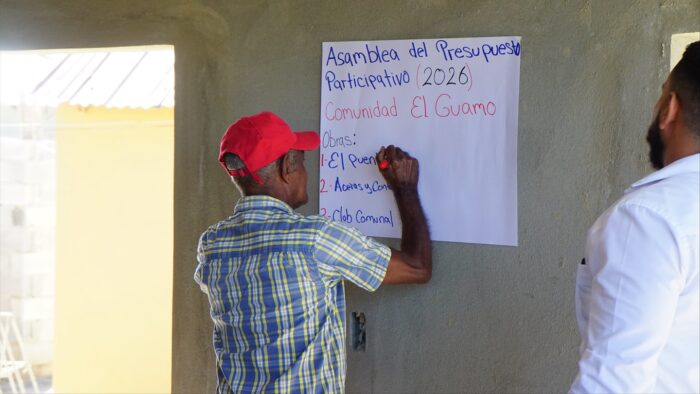 Asamblea del Presupuesto
Participativo (2026)
Comunidad El Guamo
Obras:
1- El
2- Aceras y
3- Club Comunal